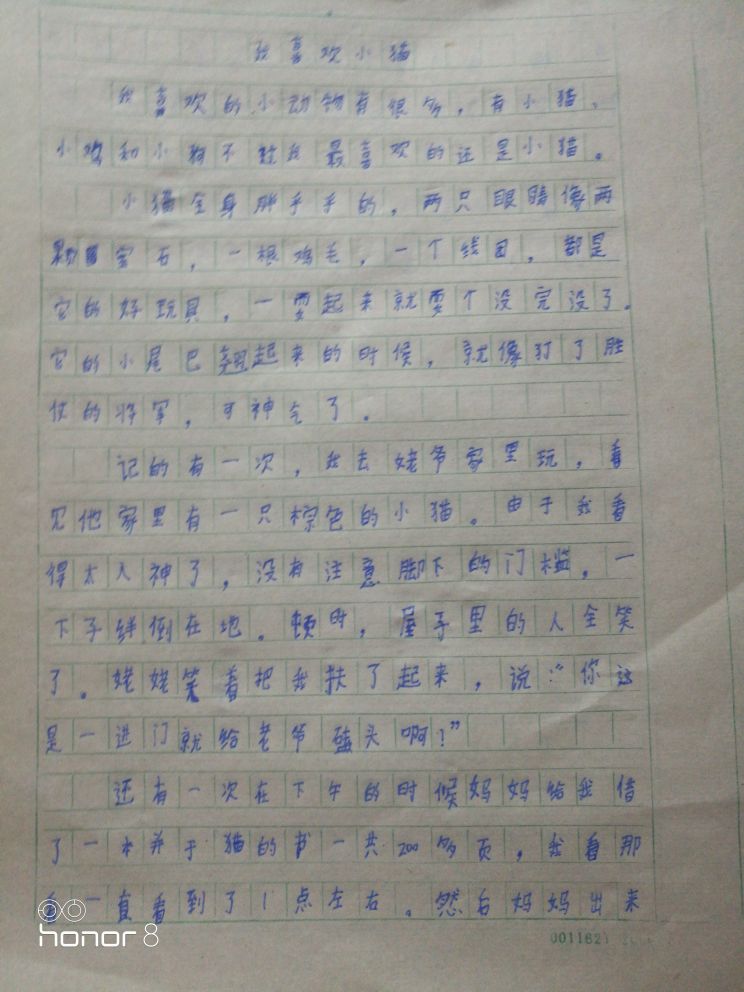 我喜欢小猫
我喜欢的小动物有很多，有小猫、
小鸡和小狗不过我最喜欢的还是小猫。
小猫全身胖乎乎的，两只眼睛像两
颗宝石，一根鸡毛，一个线团，都是
它的好玩具，一耍起来就耍个没完没了。
它的小尾巴翘起来的时候，就像打了胜
仗的将军，可神气了。
记的有一次，我去姥爷家里玩，看
见他家里有一只棕色的小猫。由于我看
得太入神了，没有注意脚下的门槛，一
下子绊倒在地。顿时，屋子里的人全笑
了。姥姥笑着把我扶了起来，说："你这
是一进门就给老爷磕头啊！"
还有一次在下午的时候妈妈给我借
了一本关于猫的书一共200多页，我看那
一直看到了1点左右。然后妈妈出来
honor 8
0011621